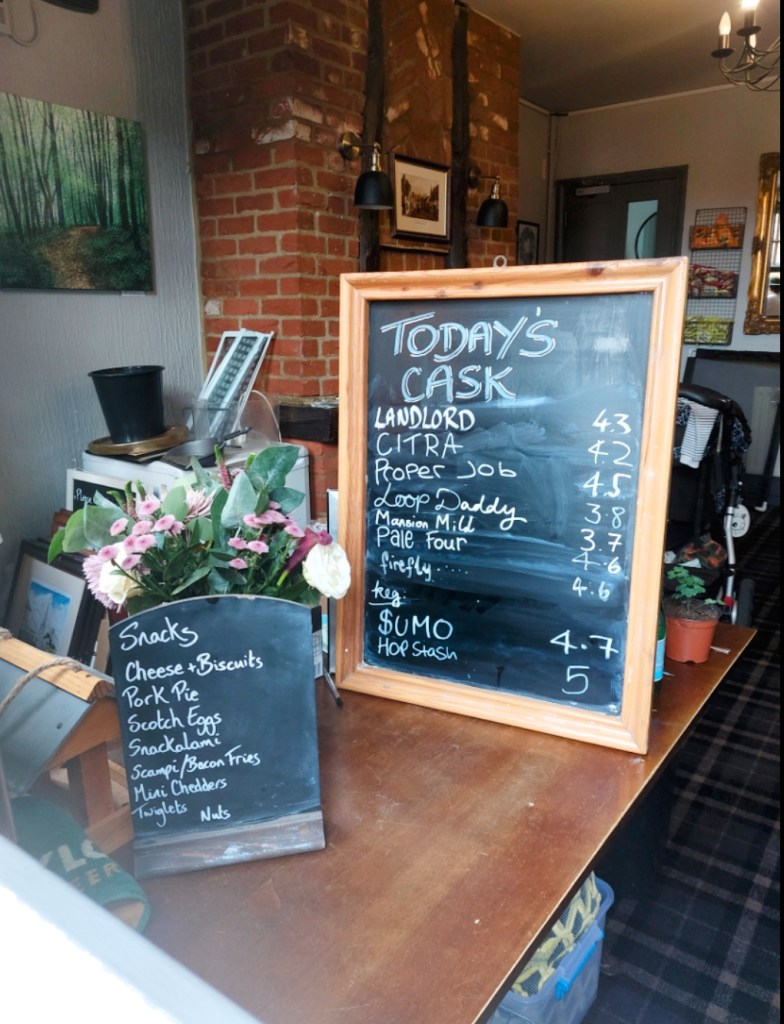 TODAY'S
CASK
LANDLORD 4.3
CITRA 4.2
Proper Job 4.5
Loop Daddy 3.8
Mansion Mill 3.7
Pale Four 4.6
firefly..... 4.6
keg.
$UMO 4.7
HOP Stash 5
Please
Snacks
Cheese + Biscuits
Pork Pie
Scotch Eggs
Snackalami
Scampi/Bacon Fries
Mini Chedders
Twiglets Nuts